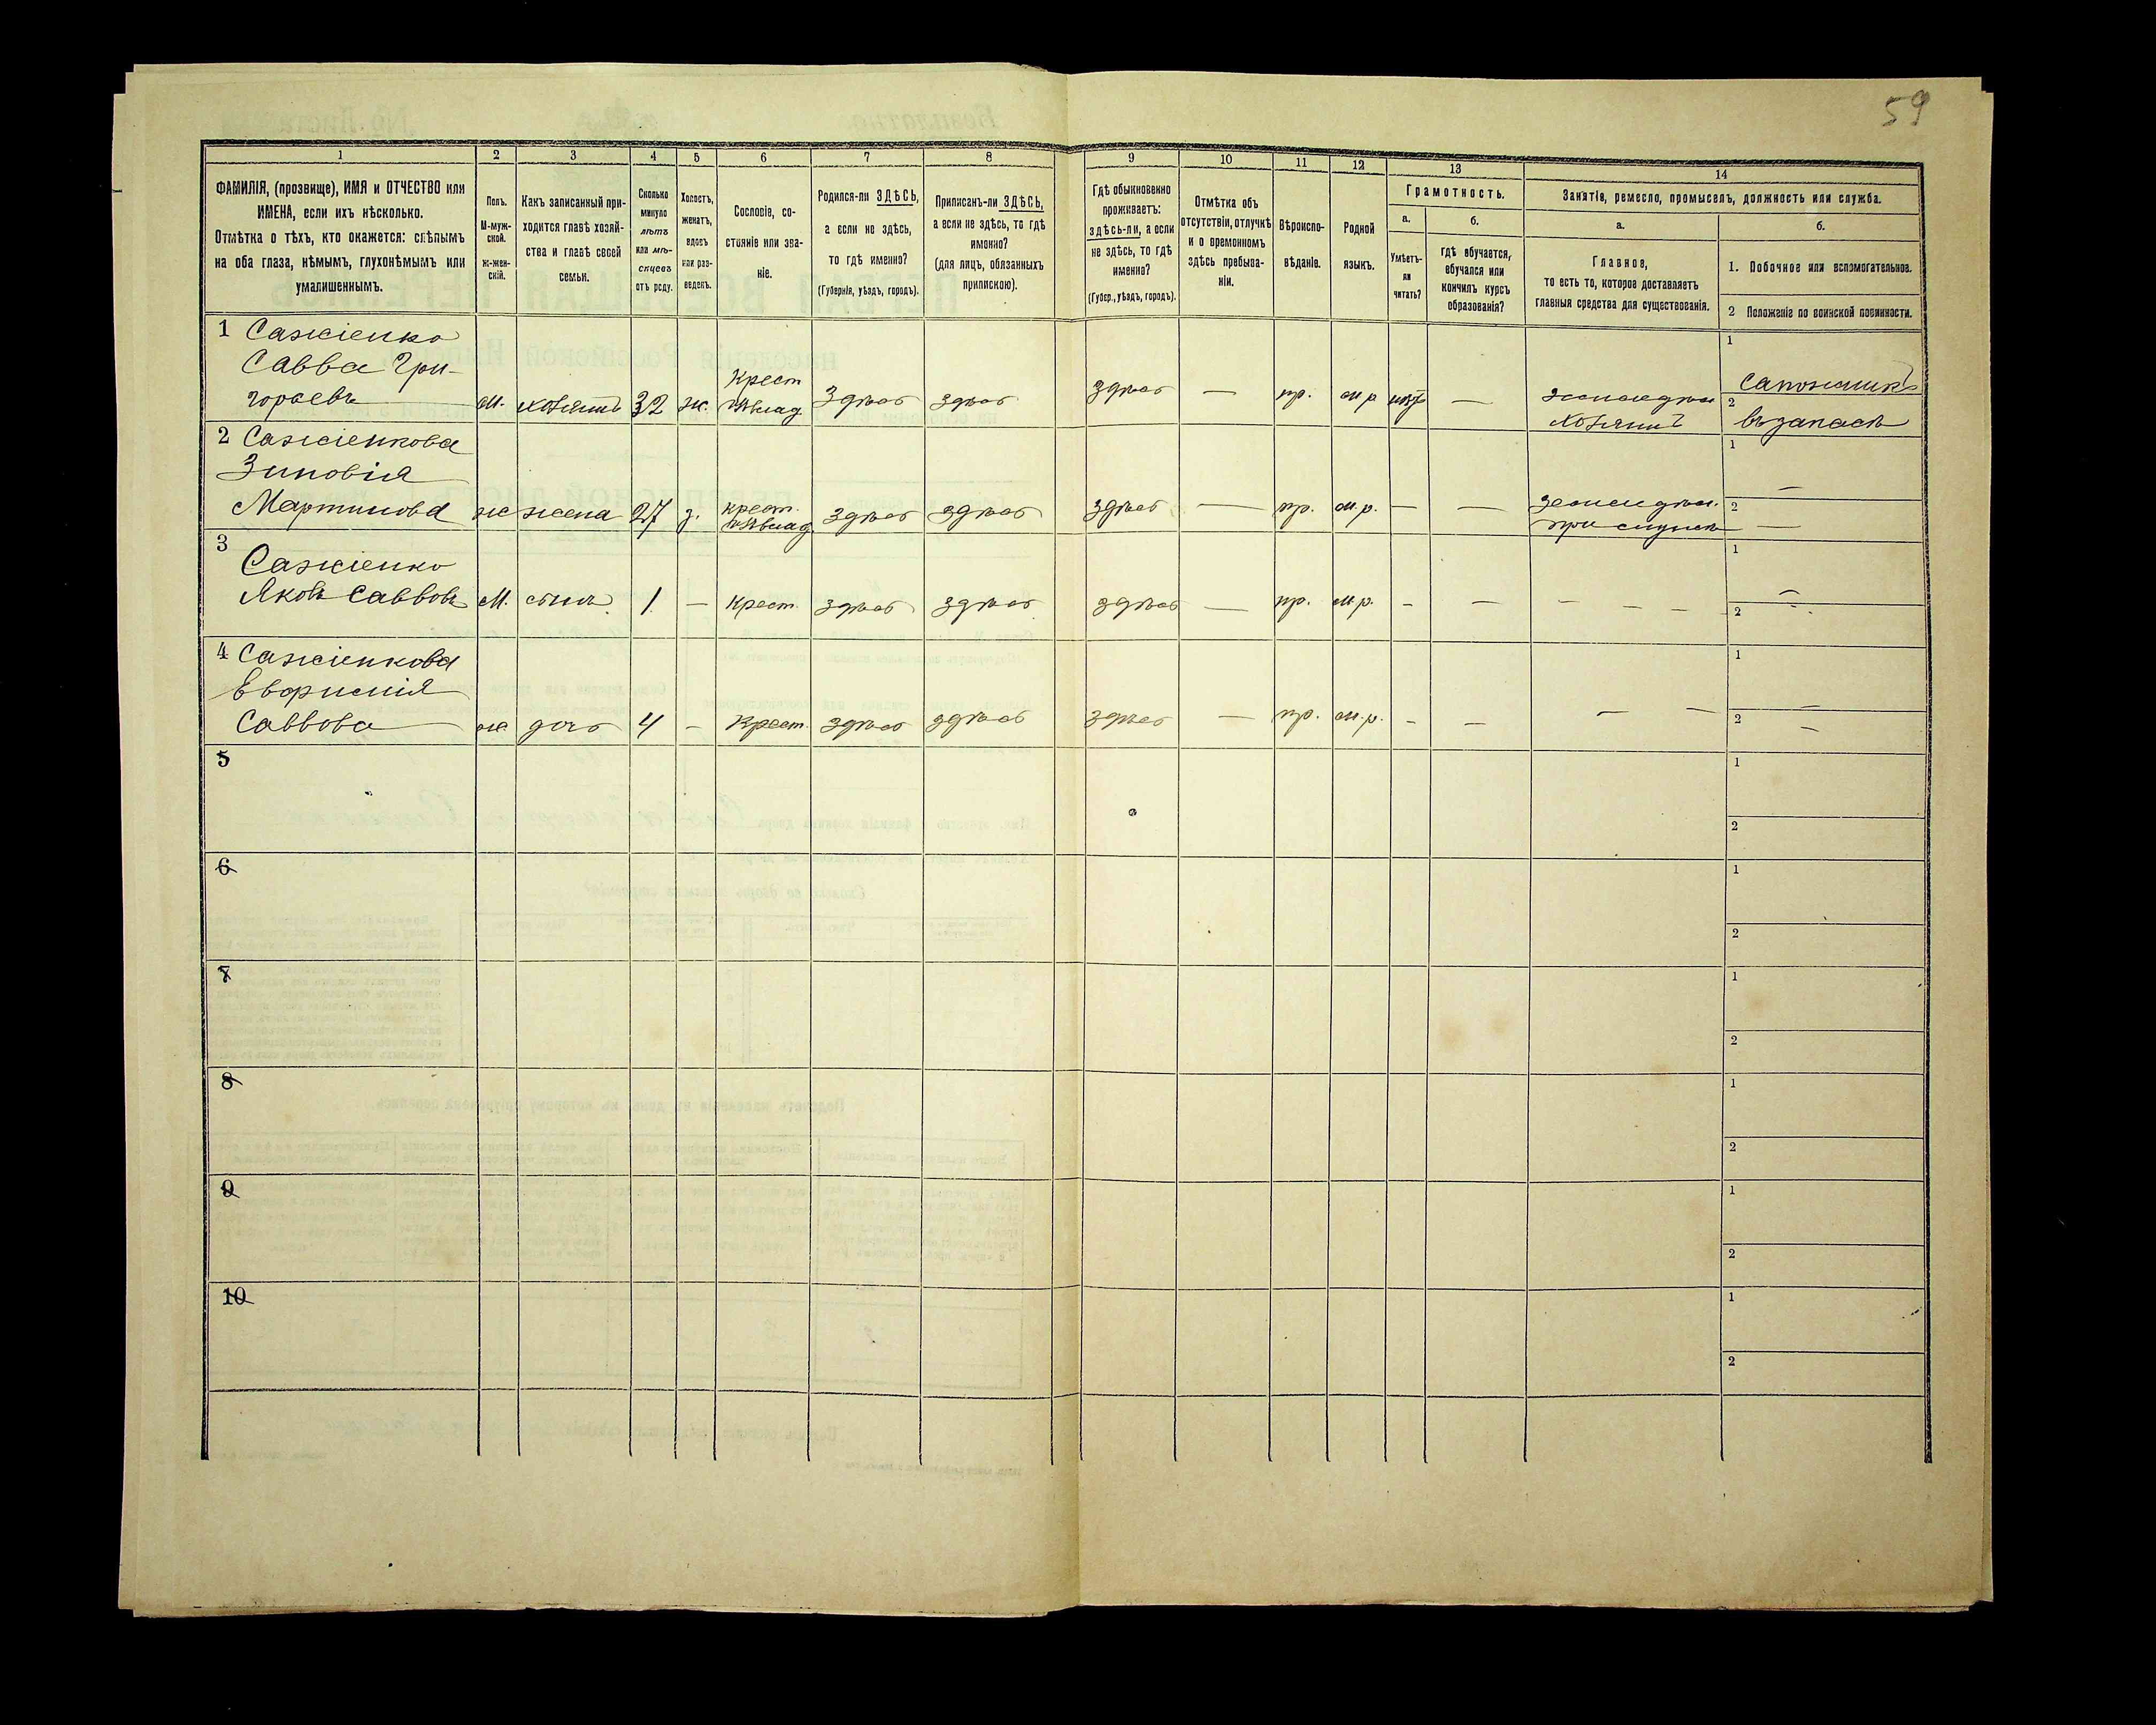 59
1 2 3 4 5 6 7 8 9 10 11 12 13 14
ФАМИЛІЯ, (прозвище), ИМЯ и ОТЧЕСТВО или
ИМЕНА, если ихъ нѣсколько.
Отмѣтка о тѣхъ, кто окажется: слѣпымъ
на оба глаза, нѣмымъ, глухонѣмымъ или
умалишеннымъ.
Полъ.
М-муж-
ской.
ж-жен-
скій.
Какъ записанный при-
ходится главѣ хозяй-
ства и главѣ своей
семьи.
Сколько
минуло
лѣтъ
или мѣ-
сяцевъ
отъ роду.
Холостъ,
женатъ,
вдовъ
или раз-
веденъ.
Сословіе, со-
стояніе или зва-
ніе.
Родился-ли ЗДѢСЬ,
а если не здѣсь,
то гдѣ именно?
(Губернія, уѣздъ, городъ).
Приписанъ-ли ЗДѢСЬ,
а если не здѣсь, то гдѣ
именно?
(для лицъ, обязанныхъ
припискою).
Гдѣ обыкновенно
проживаетъ:
здѣсь-ли, а если
не здѣсь, то гдѣ
именно?
(Губер., уѣздъ, городъ).
Отмѣтка объ
отсутствіи, отлучкѣ
и о временномъ
здѣсь пребыва-
ніи.
Вѣроиспо-
вѣданіе.
Родной
языкъ.
Грамотность.
а.
Умѣетъ-
ли
читать?
б.
гдѣ обучается,
обучался или
кончилъ курсъ
образованія?
Занятіе, ремесло, промыселъ, должность или служба.
а.
Главное,
то есть то, которое доставляетъ
главныя средства для существованія.
б.
1. Побочное или вспомогательное.
2 Положеніе по воинской повинности.
1 Сажіенко
Савва Гри-
горьевъ м. хозяинъ 32 ж. Крест здѣсь здѣсь здѣсь — пр. м.р нѣтъ —
хозяинъ
1 Сапожникъ
2 въ запасѣ
2 Сажіенкова
Зиновія
Мартинова ж жена 27 з. крест. здѣсь здѣсь здѣсь — пр. м.р. — —
1 —
2 —
3 Сажіенко
Яковъ Саввовъ М. сынъ. 1 — крест. здѣсь здѣсь здѣсь — пр. м.р. - — — — —
1 —
2 -
4 Сажіенкова
Евфрисмія
Саввова ж дочь 4 — Крест. здѣсь здѣсь здѣсь — пр. м.р. - — — —
1 —
2 —
5
1
2
6
1
2
7
1
2
8
1
2
9
1
2
10
1
2